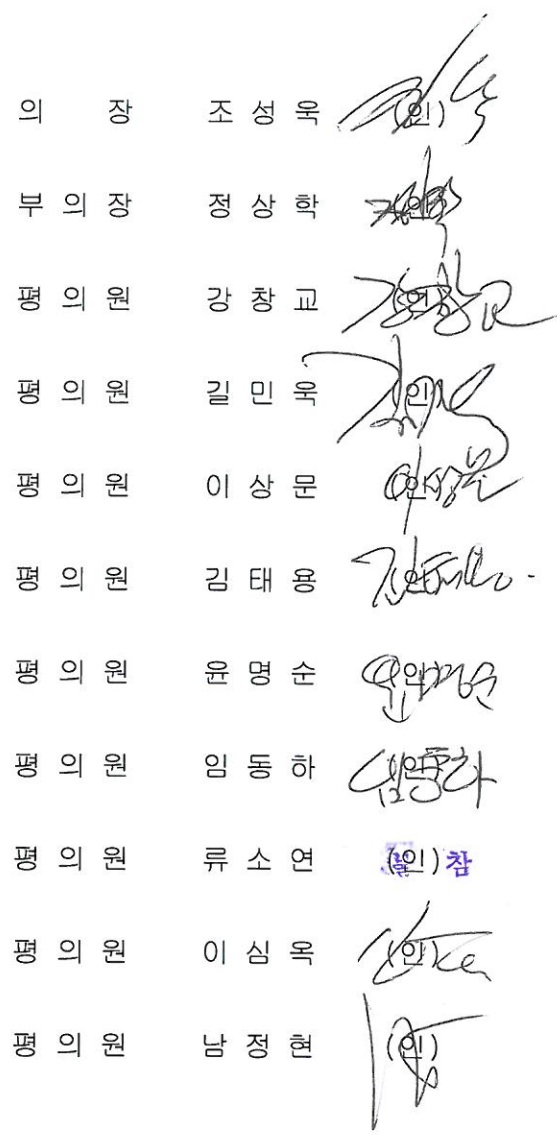 의 장 조 성 욱 (인)
부 의 장 정 상 학 (인)
평 의 원 강 창 교 (인)
평 의 원 길 민 욱 (인)
평 의 원 이 상 문 (인)
평 의 원 김 태 용 (인)
평 의 원 윤 명 순 (인)
평 의 원 임 동 하 (인)
평 의 원 류 소 연 (인) 불참
평 의 원 이 심 옥 (인)
평 의 원 남 정 현 (인)